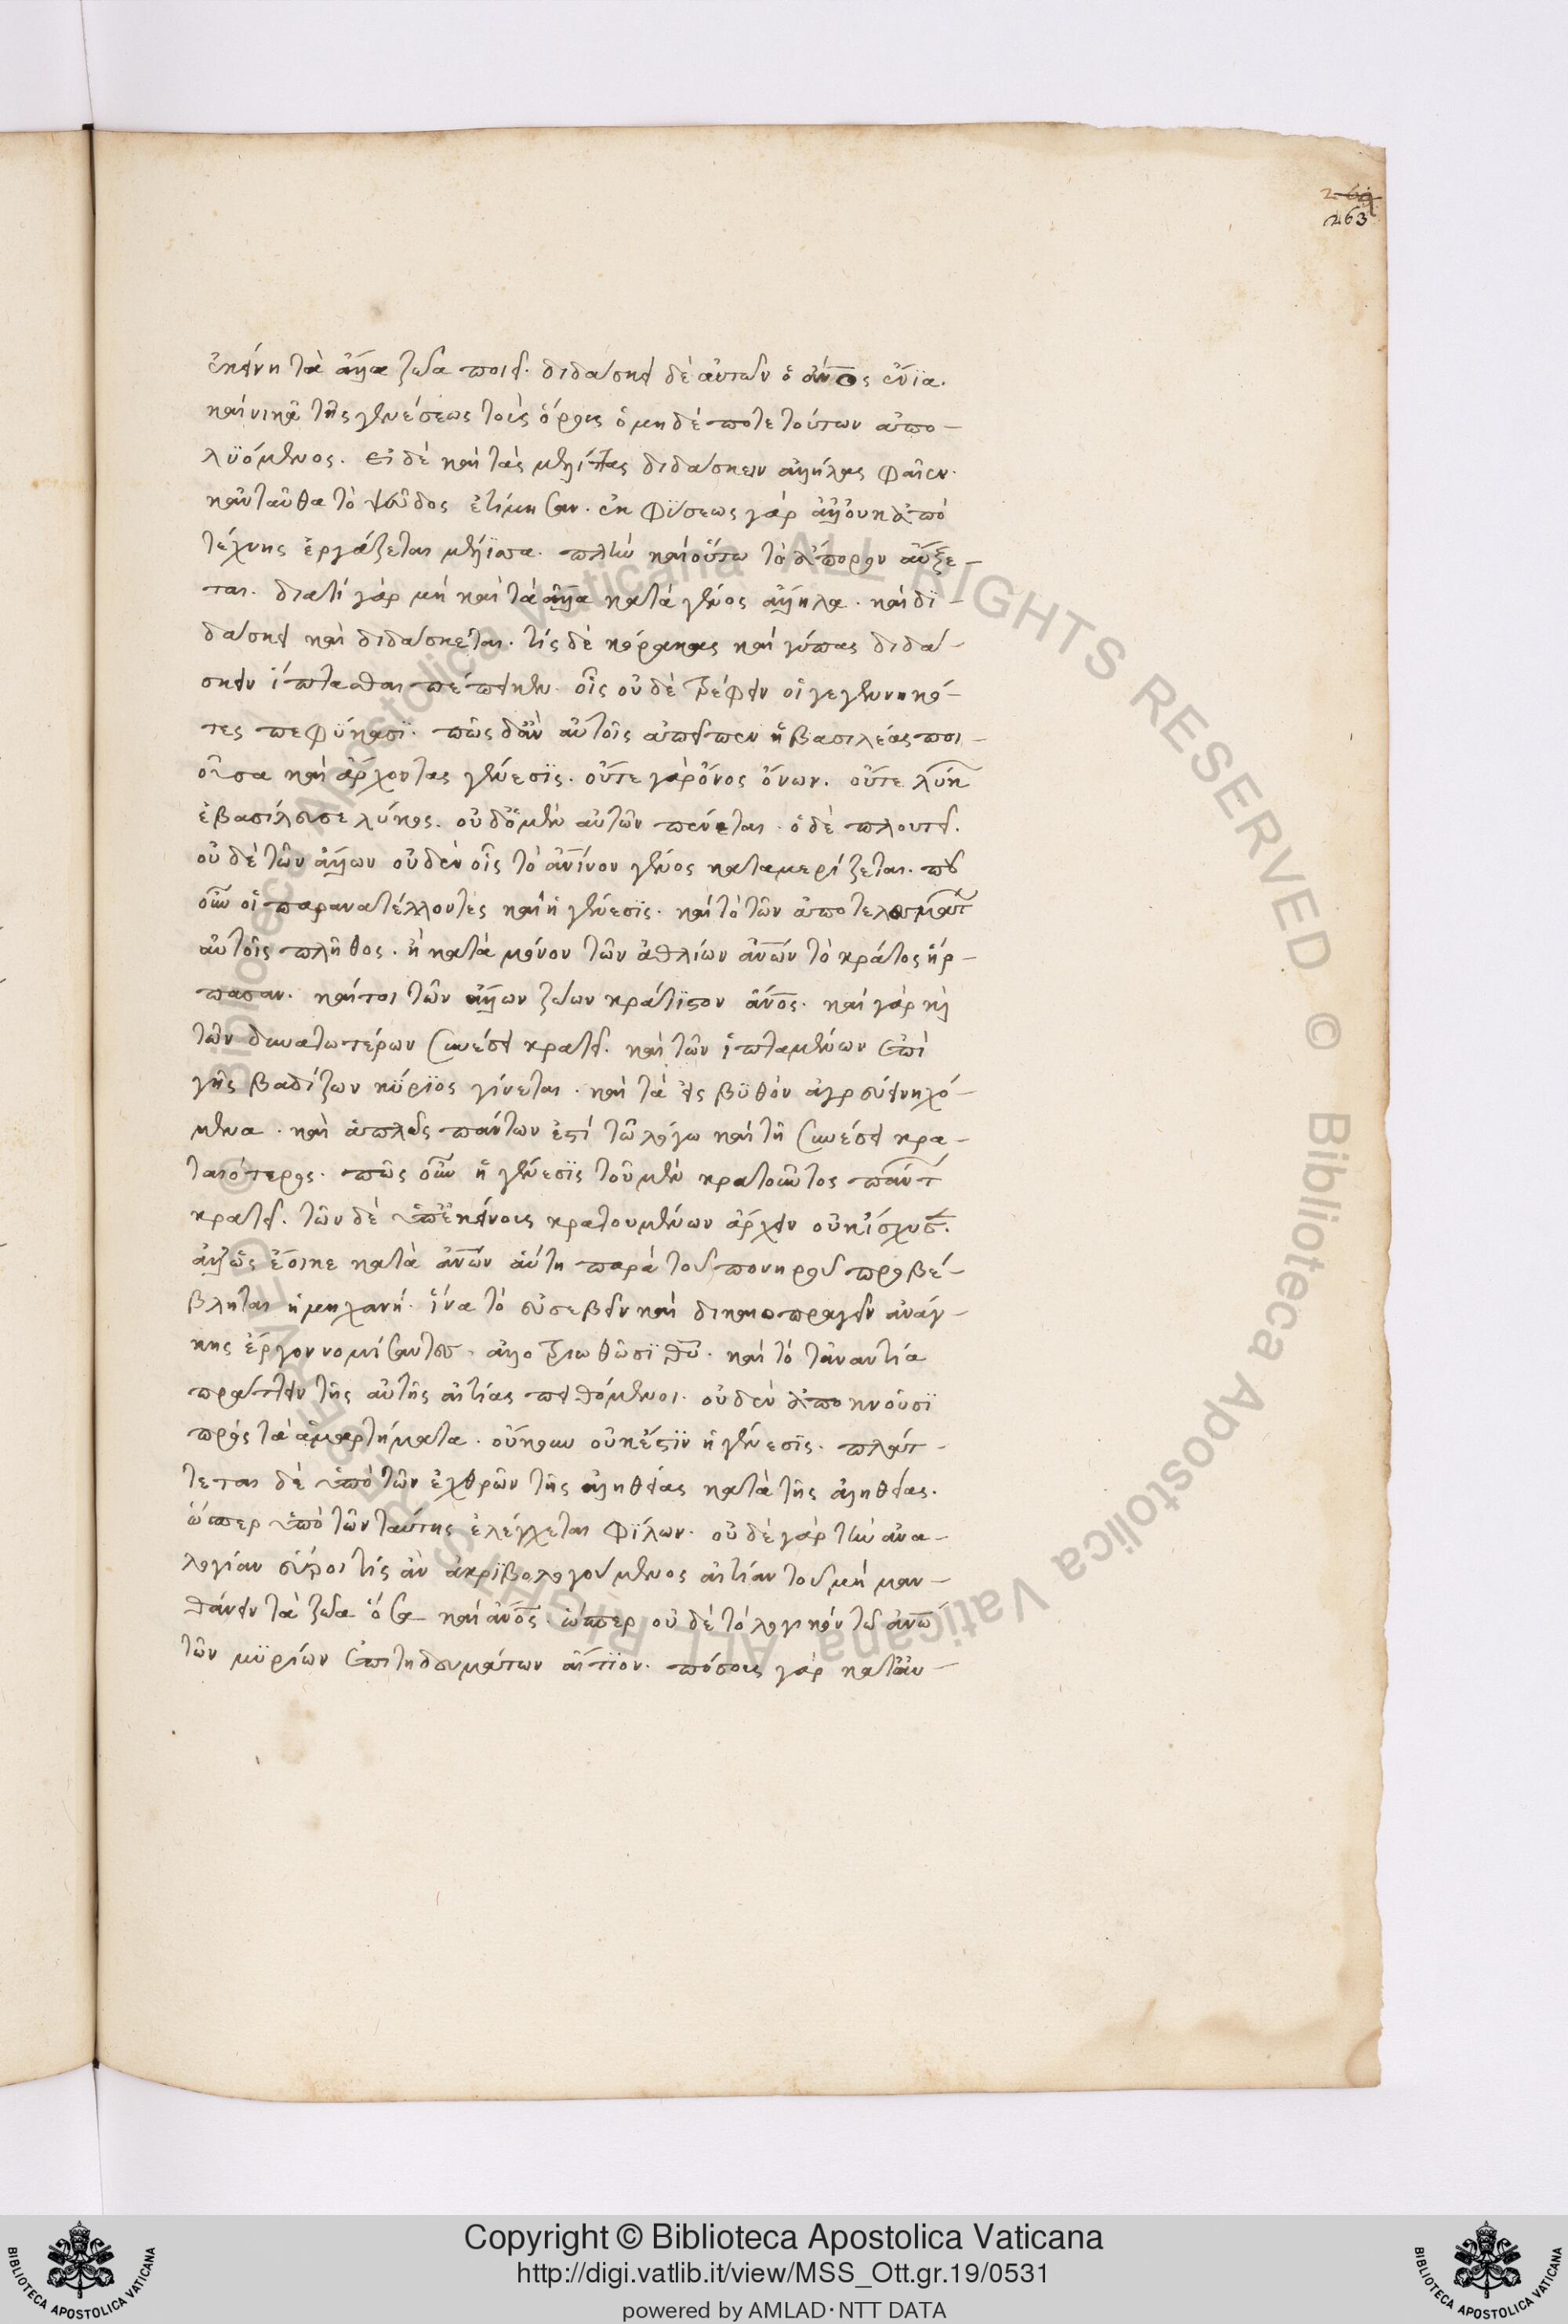 2 69
263
ἐκείνη τὰ ἄλλα ζῶα ποιεῖ. διδάσκει δὲ αὐτῶν ὁ ἄνος ἔνϊα.
καὶ νικᾶ τῆς γενέσεως τοὺς ὅρους ὁ μηδέποτε τούτων ἀπο-
λϋόμενος. εἰ δὲ καὶ τὰς μελίττας διδάσκειν ἀλλήλας φαῖεν.
κἀνταῦθα τὸ ψεῦδος ἐτίμησαν. ἐκ φύσεως γὰρ ἀλλ' οὐκ ἀπὸ
τέχνης ἐργάζεται μέλιττα. πλὴν καὶ οὕτω τὸ ἄπορον αὔξε-
ται. διατί γὰρ μὴ καὶ τὰ ἄλλα κατὰ γένος ἄλληλα. καὶ δϊ-
δάσκει καὶ διδάσκεται. τίς δὲ κόρακας καὶ γύπας διδά-
σκειν ἵπτασθαι πέπεικεν. οἷς οὐδὲ τρέφειν οἱ γεγεννηκό-
τες πεφΰκασϊ. πῶς δ' ἂν αὐτοῖς ἀπεῖπεν ἡ βασιλέας ποι-
οῦσα καὶ ἄρχοντας γένεσϊς. οὔτε γὰρ ὄνος ὄνων. οὔτε λύκ
ἐβασίλευσε λύκος. οὐδ' ὁ μὲν αὐτῶν πένεται. ὁ δὲ πλουτεῖ.
οὐδὲ τῶν ἄλλων οὐδὲν οἷς τὸ ἀνίνον γένος καταμερίζεται. ποῦ
οὖν οἱ παρανατέλλοντες καὶ ἡ γένεσϊς. καὶ τὸ τῶν ἀποτελεσμάτ
αὐτοῖς πλῆθος. ἢ κατὰ μόνον τῶν ἀθλίων ἀνων τὸ κράτος ἥρ-
πασαν. καίτοι τῶν ἄλλων ζώων κράτϊστον ἄνος. καὶ γὰρ καὶ
τῶν δυνατωτέρων συνέσει κρατεῖ. καὶ τῶν ἱπταμένων ἐπὶ
γῆς βαδίζων κύρϊος γίνεται. καὶ τὰ εἰς βϋθὸν ἀγρεύει νηχό-
μενα. καὶ ἁπλῶς πάντων ἐστὶ τῶ λόγω καὶ τῆ συνέσει κρα-
ταιότερος. πῶς οὖν ἡ γένεσϊς τοῦ μὲν κρατοῦντος πάντ
κρατεῖ. τῶν δὲ ὑπ' ἐκείνοις κρατουμένων ἄρχειν οὐκ ἴσχυσ.
ἀλλ' ὡς ἔοικε κατὰ ἀνων αὕτη παρὰ τοῦ πονηροῦ προβέ-
βληται ἡ μηχανή. ἵνα τὸ εὐσεβεῖν καὶ δικαιοπραγεῖν ἀνάγ-
κης ἔργον νομίσαντες. ἀλλοτριωθῶσϊ θυ. καὶ τὸ τἀναντία
πράττειν τῆς αὐτῆς αἰτίας πειθόμενοι. οὐδὲν ἀποκνοῦσϊ
πρὸς τὰ ἁμαρτήματα. οὔκουν οὐκ ἔστϊν ἡ γένεσϊς. πλάτ-
τεται δὲ ὑπὸ τῶν ἐχθρῶν τῆς ἀληθείας κατὰ τῆς ἀληθείας.
ὥσπερ ὑπὸ τῶν ταύτης ἐλέγχεται φϊλων. οὐδὲ γὰρ τὴν ἀνα-
λογίαν εὕροι τίς ἂν ἀκρϊβολογούμενος αἰτίαν τοῦ μὴ μαν-
θάνειν τὰ ζῶα ὅσα καὶ ἄνος. ὥσπερ οὐδὲ τὸ λογικὸν τῶ ἀνω
τῶν μϋρίων ἐπιτηδευμάτων αἴτϊον. πόσοις γὰρ κατ' ἀν-